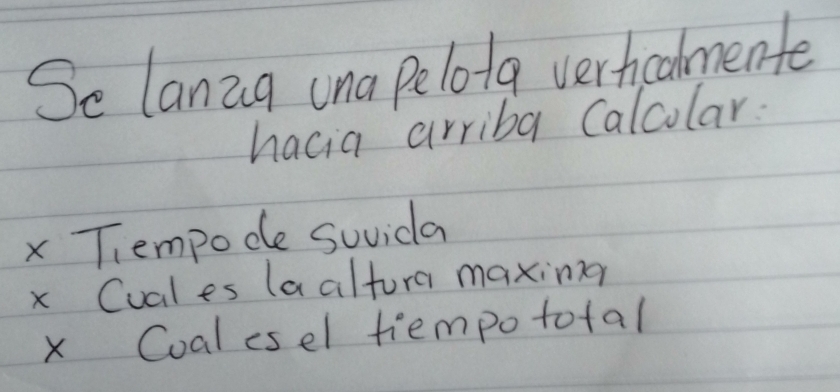 Se lanza una pelota verticalmente
hacia arriba Calcular:
x Tiempo de suvida
x Cual es la altura maxima
x Cual es el tiempo total